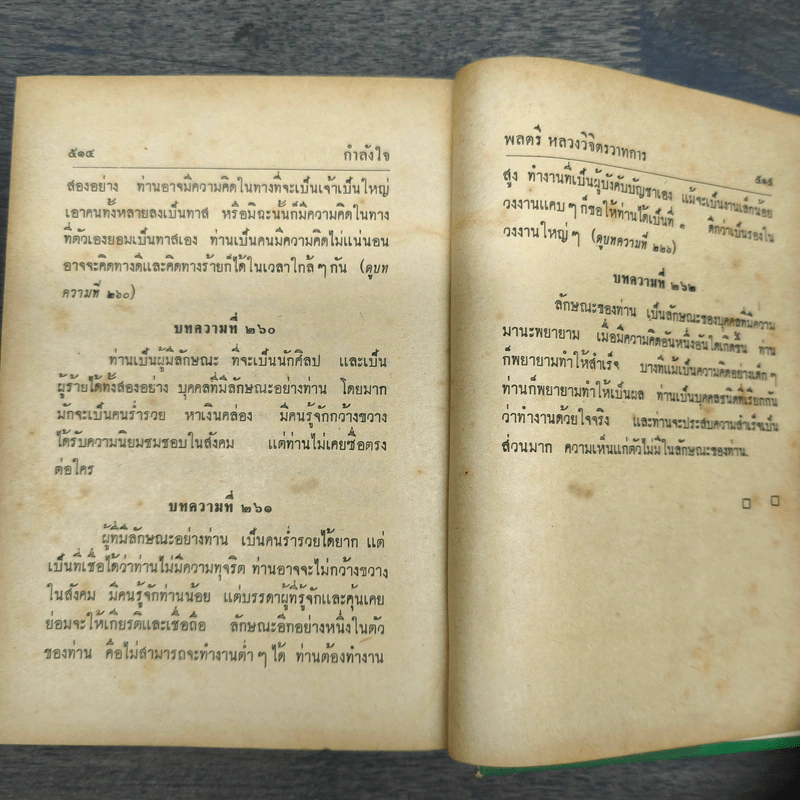 ๕๑๔ กำลังใจ
สองอย่าง ท่านอาจมีความคิดในทางที่จะเป็นเจ้าเป็นใหญ่
เอาคนทั้งหลายลงเป็นทาส หรือมิฉะนั้นก็มีความคิดในทาง
ที่ตัวเองยอมเป็นทาสเอง ท่านเป็นคนมีความคิดไม่แน่นอน
อาจจะคิดทางดีและคิดทางร้ายก็ได้ในเวลาใกล้ๆ กัน (ดูบท
ความที่ ๒๖๐)
บทความที่ ๒๖๐
ท่านเป็นผู้มีลักษณะ ที่จะเป็นนักศิลป และเป็น
ผู้ร้ายได้ทั้งสองอย่าง บุคคลที่มีลักษณะอย่างท่าน โดยมาก
มักจะเป็นคนร่ำรวย หาเงินคล่อง มีคนรู้จักกว้างขวาง
ได้รับความนิยมชมชอบในสังคม แต่ท่านไม่เคยซื่อตรง
ต่อใคร
บทความที่ ๒๖๑
ผู้ที่มีลักษณะอย่างท่าน เป็นคนร่ำรวยได้ยาก แต่
เป็นที่เชื่อได้ว่าท่านไม่มีความทุจริต ท่านอาจจะไม่กว้างขวาง
ในสังคม มีคนรู้จักท่านน้อย แต่บรรดาผู้ที่รู้จักและคุ้นเคย
ย่อมจะให้เกียรติและเชื่อถือ ลักษณะอีกอย่างหนึ่งในตัว
ของท่าน คือไม่สามารถจะทำงานต่ำๆ ได้ ท่านต้องทำงาน
พลตรี หลวงวิจิตรวาทการ ๕๑๕
สูง ทำงานที่เป็นผู้บังคับบัญชาเอง แม้จะเป็นงานเล็กน้อย
วงงานแคบๆ ก็ขอให้ท่านได้เป็นที่ ๑ ดีกว่าเป็นรองใน
วงงานใหญ่ๆ (ดูบทความที่ ๒๒๖)
บทความที่ ๒๖๒
ลักษณะของท่าน เป็นลักษณะของบุคคลที่มีความ
มานะพยายาม เมื่อมีความคิดอันหนึ่งอันใดเกิดขึ้น ท่าน
ก็พยายามทำให้สำเร็จ บางทีแม้เป็นความคิดอย่างเด็กๆ
ท่านก็พยายามทำให้เป็นผล ท่านเป็นบุคคลชนิดที่เรียกกัน
ว่าทำงานด้วยใจจริง และท่านจะประสบความสำเร็จเป็น
ส่วนมาก ความเห็นแก่ตัวไม่มีในลักษณะของท่าน.